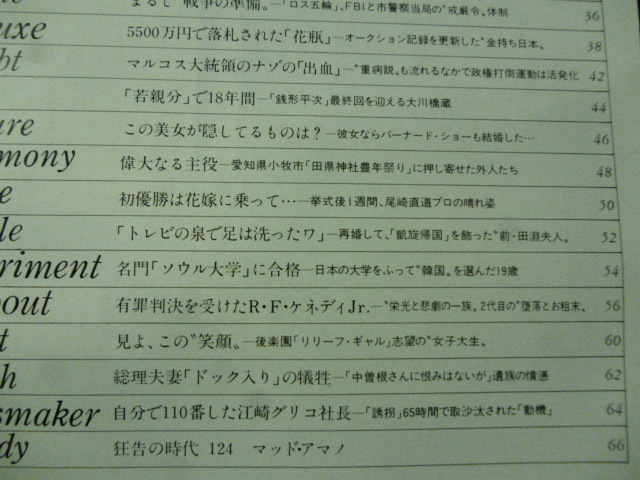 まるで〝戦争の準備〟―「ロス五輪」、FBIと市警察当局の〝戒厳令〟体制 36
uxe 5500万円で落札された「花瓶」―オークション記録を更新した〝金持ち日本〟 38
bt マルコス大統領のナゾの「出血」―〝重病説〟も流れるなかで政権打倒運動は活発化 42
「若親分」で18年間―「銭形平次」最終回を迎える大川橋蔵 44
ure この美女が隠してるものは?―彼女ならバーナード・ショーも結婚した… 46
mony 偉大なる主役―愛知県小牧市「田県神社豊年祭り」に押し寄せた外人たち 48
e 初優勝は花嫁に乗って…―挙式後1週間、尾崎直道プロの晴れ姿 50
le 「トレビの泉で足は洗ったワ」―再婚して、「凱旋帰国」を飾った〝前・田淵夫人〟 52
riment 名門「ソウル大学」に合格―日本の大学をふって〝韓国〟を選んだ19歳 54
bout 有罪判決を受けたR・F・ケネディJr.―〝栄光と悲劇の一族〟2代目の〝堕落とお粗末〟 56
t 見よ、この〝笑顔〟―後楽園「リリーフ・ギャル」志望の〝女子大生〟 60
h 総理夫妻「ドック入り」の犠牲―「中曽根さんに恨みはないが」遺族の憤懣 62
smaker 自分で110番した江崎グリコ社長―「誘拐」65時間で取沙汰された「動機」 64
dy 狂告の時代 124 マッド・アマノ 66